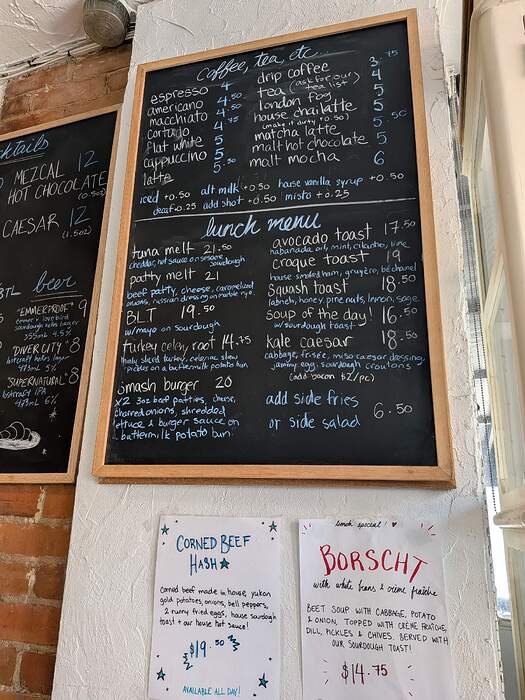 cktails
MEZCAL 12
HOT CHOCOLATE
CAESAR 12
(1.5oz)
BTL beer
sourdough
355mL 4.5%
"DIVERCITY" 8
473mL 5%
"SUPERNATURAL" 8
473mL 6%
coffee, tea, etc
espresso 4
americano 4
macchiato 4.50
cortado 4.75
flat white 5
cappuccino 5
latte 5.50
drip coffee 3.75
tea (ask for our tea list) 4
london fog 5
house chai latte 5
(make it dirty +0.50)
matcha latte 5.50
malt hot chocolate 5
malt mocha 6
iced +0.50 alt milk +0.50 house vanilla syrup +0.50
decaf +0.25 add shot +0.50 misto +0.25
lunch menu
tuna melt 21.50
cheddar, hot sauce on sesame
sourdough
patty melt 21
beef patty, cheese, caramelized
onions, russian dressing on marble rye
BLT 19.50
w/mayo on sourdough
turkey celery root 14.75
thinly sliced turkey, celeriac slaw
pickles on a buttermilk potato bun
smash burger 20
x2 3oz beef patties, cheese,
charred onions, shredded
lettuce & burger sauce on
buttermilk potato bun
avocado toast 17.50
habanada oil, mint, cilantro, lime
croque toast 19
house smoked ham, gruyère, béchamel
squash toast 18.50
labneh, honey, pine nuts, lemon, sage
soup of the day! 16.50
w/ sourdough toast
kale caesar 18.50
cabbage, frisée, miso caesar dressing,
jammy egg, sourdough croutons
(add bacon $2/pc)
add side fries
or side salad 6.50
CORNED BEEF
HASH
corned beef made in house, yukon
gold potatoes, onions, bell peppers,
2 runny fried eggs, house sourdough
toast + our house hot sauce!
$19.50
AVAILABLE ALL DAY!
lunch special!
BORSCHT
with white beans & crème fraîche
BEET SOUP WITH CABBAGE, POTATO
& ONION, TOPPED WITH CRÈME FRAÎCHE,
DILL, PICKLES & CHIVES. SERVED WITH
OUR SOURDOUGH TOAST!
$14.75